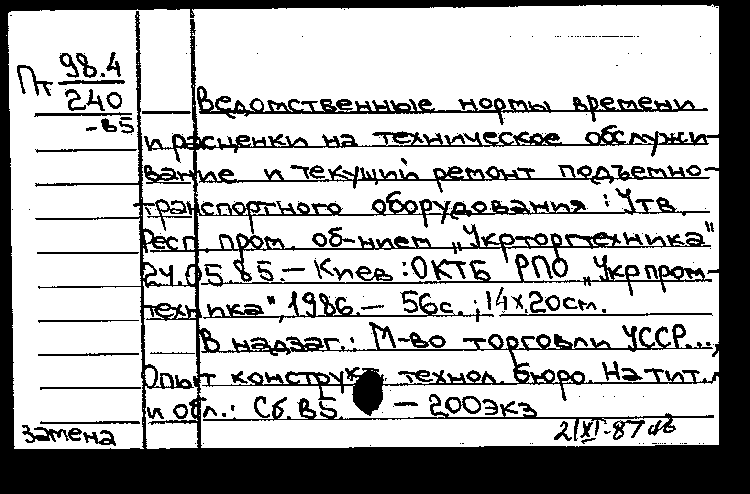 Пт 98.4
240
-В5
Ведомственные нормы времени
и расценки на техническое обслужи-
вание и текущий ремонт подъемно-
транспортного оборудования : Утв.
Респ. пром. об-нием „Укрторгтехника"
24.05.85.- Киев : ОКТБ РПО „Укрпром-
техника", 1986.- 56с. ; 14х20см.
В надзаг.: М-во торговли УССР...,
Опыт конструкт. технол. бюро. На тит. л
и обл.: Сб. В5. - 200экз
замена
2/XI-87